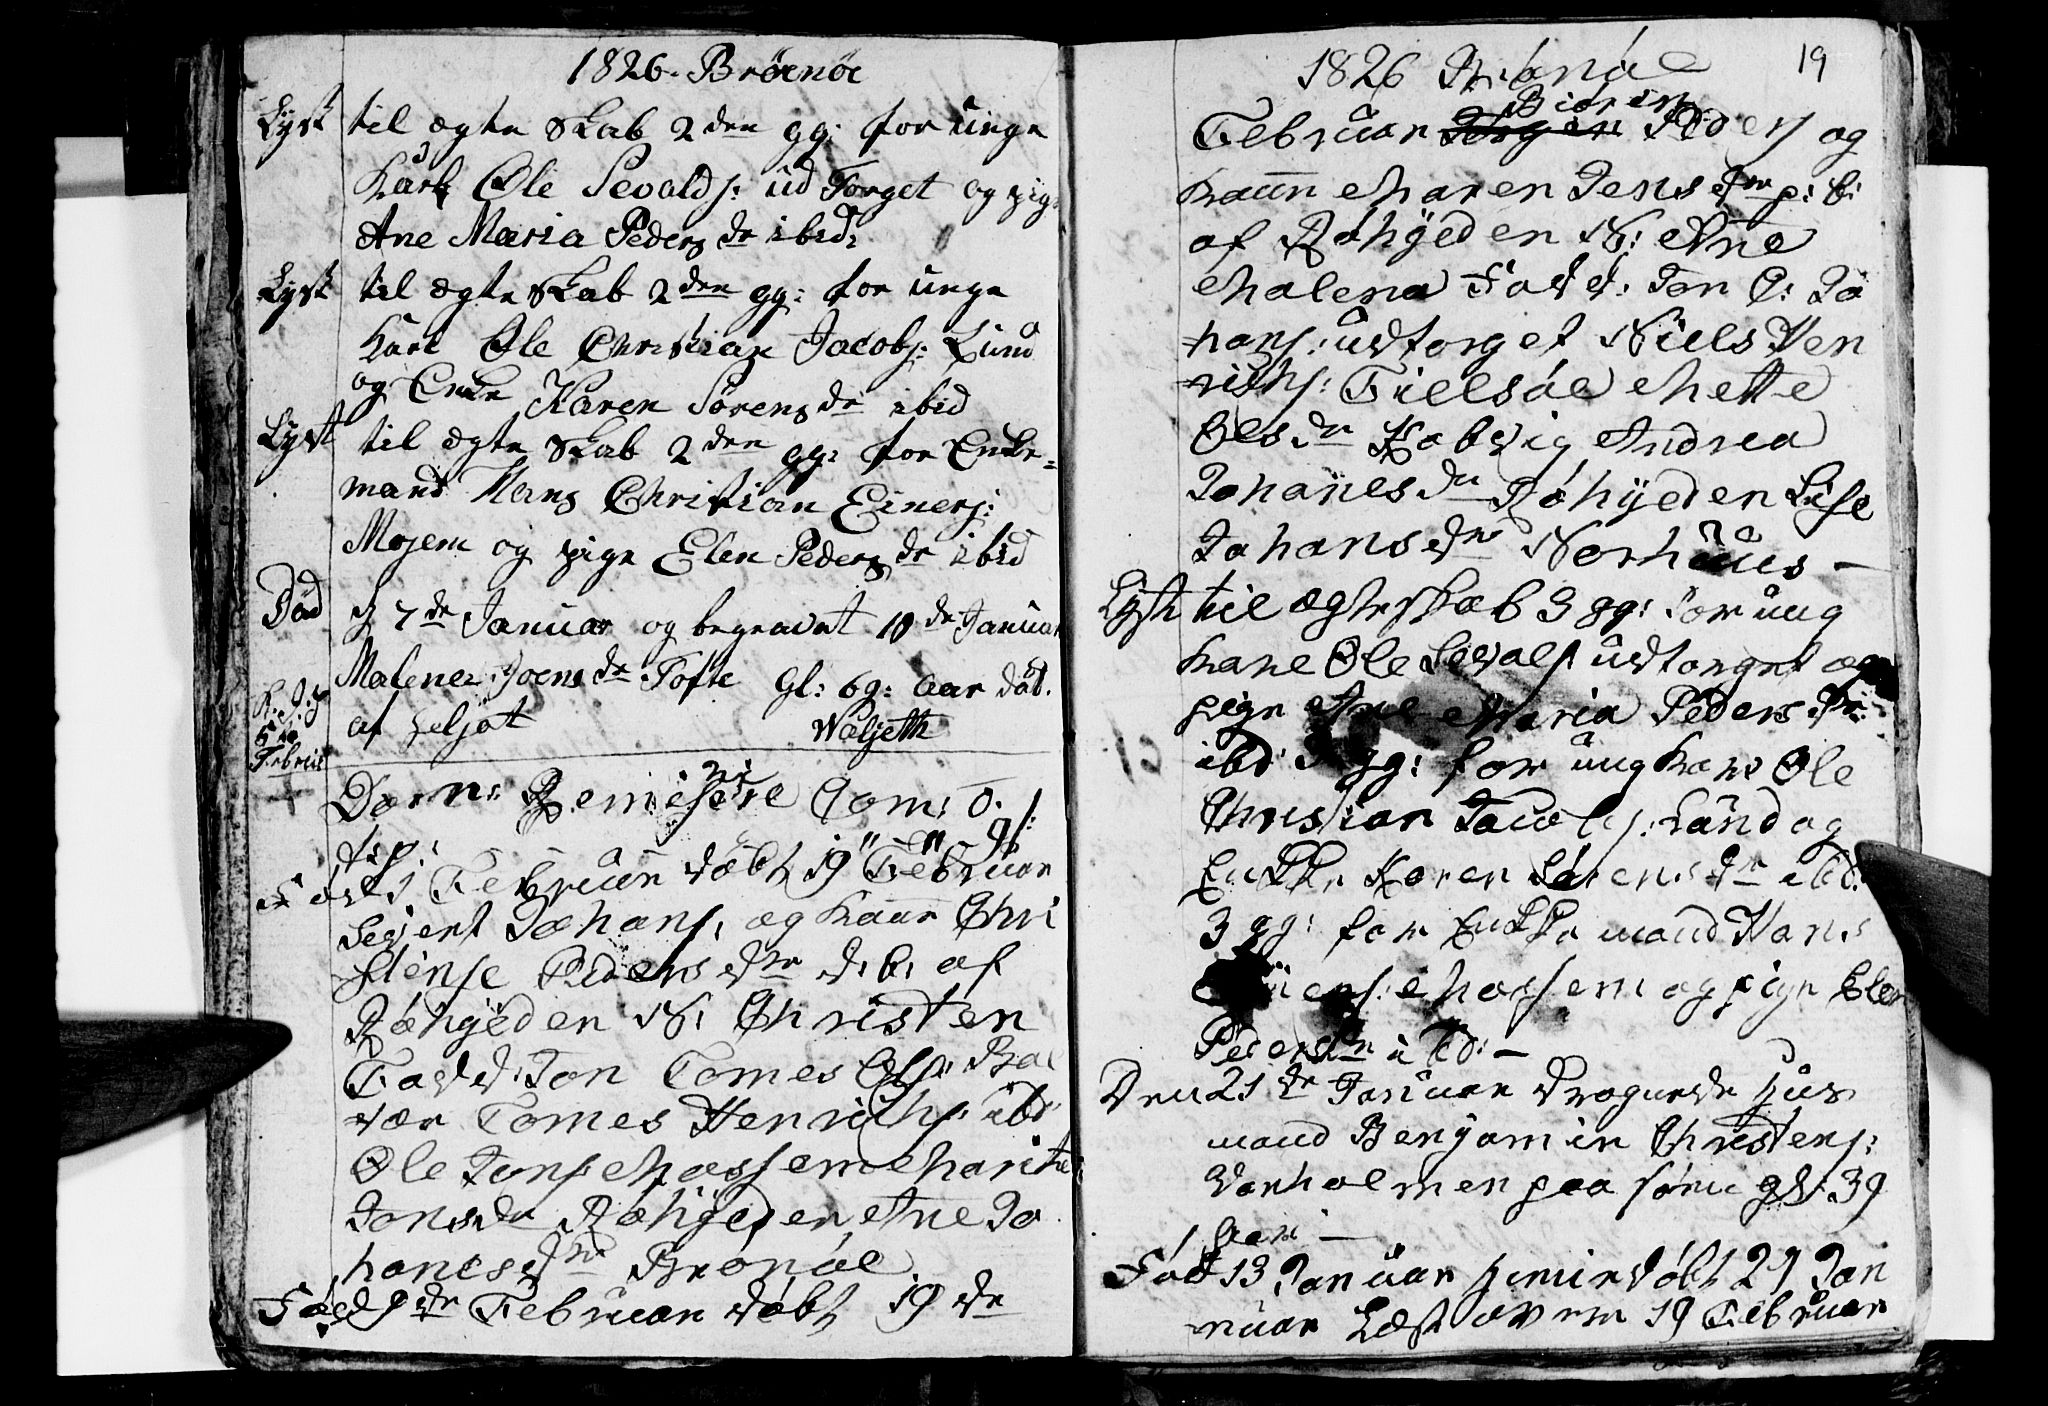 1826. Brøenøe
Lyst til ægte skab 2den gg: for unge
Karl Ole Sevalds: ud Torget og pige
Ane Maria Peders dr ibid:
Lyst til ægte skab 2den gg: for unge
Karl Ole Christian Jacobs: Lund
og Enke Karen Sørens dr ibid
Lyst til ægte skab 2den gg: for Enke=
mand Hans Christian Einers:
Mosem og pige Elen Peders dr ibid
Død d 7de Januar og begravet 10de Januar
Malena Joens dr Tofte Gl: 69: Aar død.
af
Wæljeth
5te
Februar
Dom:
Fød 1 Februar døbt 19 Februar
Sivert Johans: og kaane Chri
stense Peders dr d: b: af
Røhyeden N: Christen
Fadd: Ton Tomes Ols: Bal
vær Tomes Henrichs: ibd
Ole Jons Mossem Marithe
Jons dr Røhyeden Ane Jo
hanes dr Brønøe
Fød 9de Februar døbt 19de
1826 Brønøe 19
Februar Jørgen Biøren Peders og
kaan Maren Jens dr p: b:
af Røhyeden N: Ane
Malena Fadd: Jon O: Jo
hans: udtorget Niels Hen
richs: Tielsøe Mette
Ols dr Kobvig Andrea
Johanes dr Røhyeden Lise
Johans dr Norhuus —
Lyst til ægteskab 3 gg: for ung
karl Ole Sevals udtorget og
pige Ane Maria Peders dr
ibd 3 gg: for ung karl Ole
Christian Jacobs: Lund og
Enke Karen Sørens dr ibd:
3 gg: for Enke mand Hans
Einers: Mossem og pige Elen
Peders dr ibd: —
Den 21de Januar Drognede Hus
mand Benjamin Christens:
Torholmen paa Søen gl: 39
Aar —
Fød 13 Januar hjemmedøbt 27 Jan
nuar Læst over 19 Februar